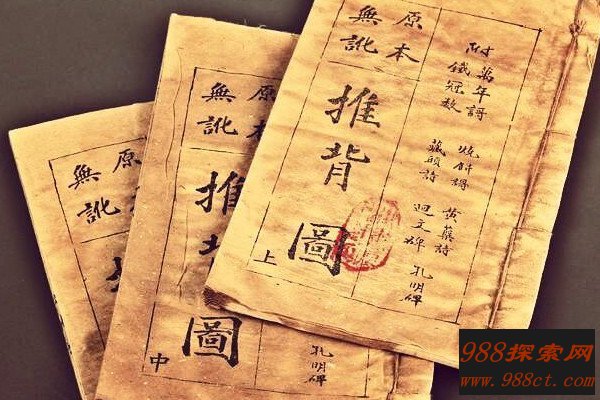 附
萬年謌
鐵冠數
燒餅謌
藏頭詩
黃蘗詩
迴文碑
孔明碑
原本
無訛
推背圖
上
原本
無訛
推背圖
中
孔明碑
原
無訛
988探索网
www.988ct.com